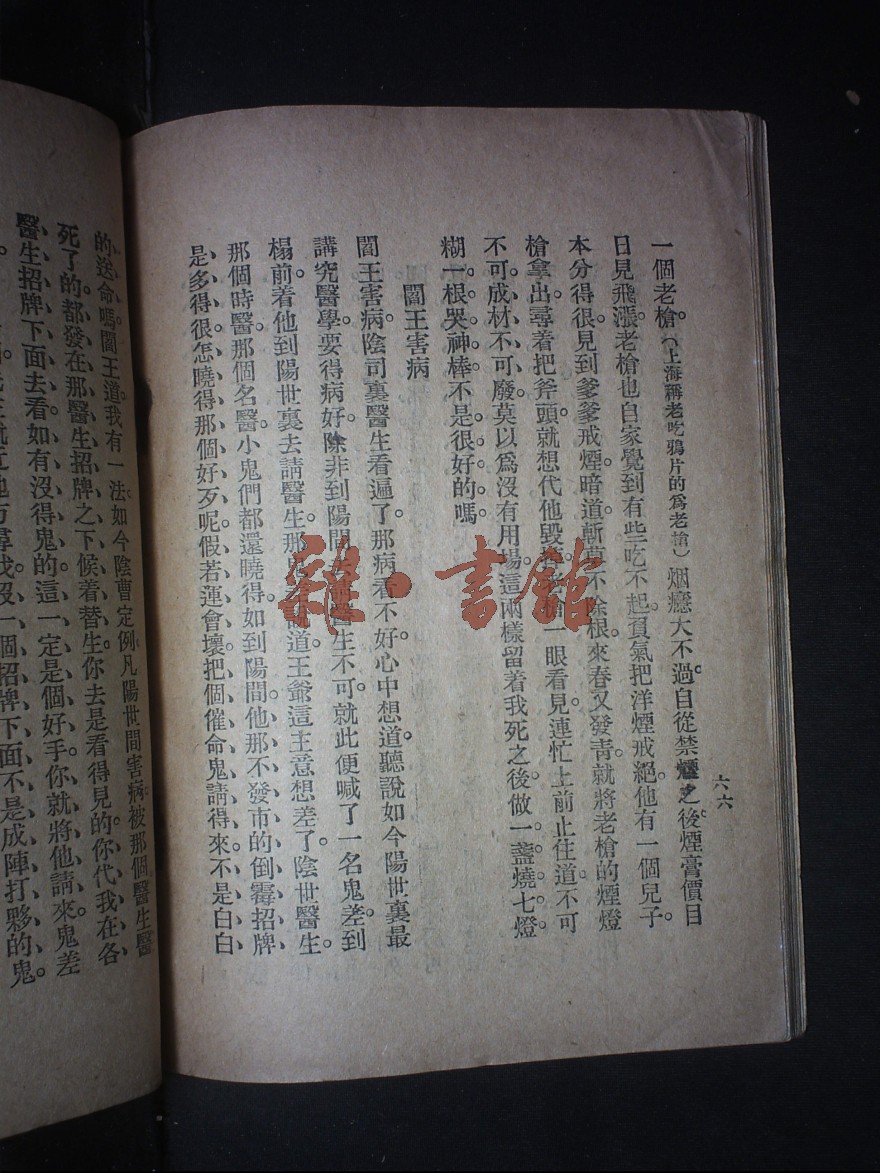 六六
一個老槍。(上海稱老吃鴉片的爲老槍)烟癮大不過。自從禁煙之後。煙膏價目
日見飛漲。老槍也自家覺到有些吃不起。負氣把洋煙戒絕。他有一個兒子。
本分得很。見到爹爹戒煙。暗道斬草不除根。來春又發靑。就將老槍的煙燈
槍拿出。尋着把斧頭。就想代他毀 槍一眼看見。連忙上前止住道。不可
不可。成材不可廢。莫以爲沒有用場。這兩樣留着我死之後。做一盞燒七燈。
糊一根哭神棒。不是很好的嗎。
閻王害病
閻王害病。陰司裏醫生看遍了。那病看不好。心中想道。聽說如今陽世裏最
講究醫學。要得病好。除非到陽間去 醫生不可。就此便喊了一名鬼差。到
榻前着他到陽世裏去請醫生。那 說道。王爺這主意想差了。陰世醫生。
那個時醫。那個名醫。小鬼們都還曉得。如到陽間。他那不發市的倒霉招牌
是多得很。怎曉得那個好歹呢。假若運會壞。把個催命鬼請得來。不是白白
的送命嗎。閻王道。我有一法。如今陰曹定例。凡陽世間害病被那個醫生醫
死了的。都發在那醫生招牌之下。候着替生。你去是看得見的。你代我在各
醫生招牌下面去看。如有沒得鬼的。這一定是個好手。你就將他請來。鬼差
招牌下面不是成陣打夥的鬼。
雜·書館